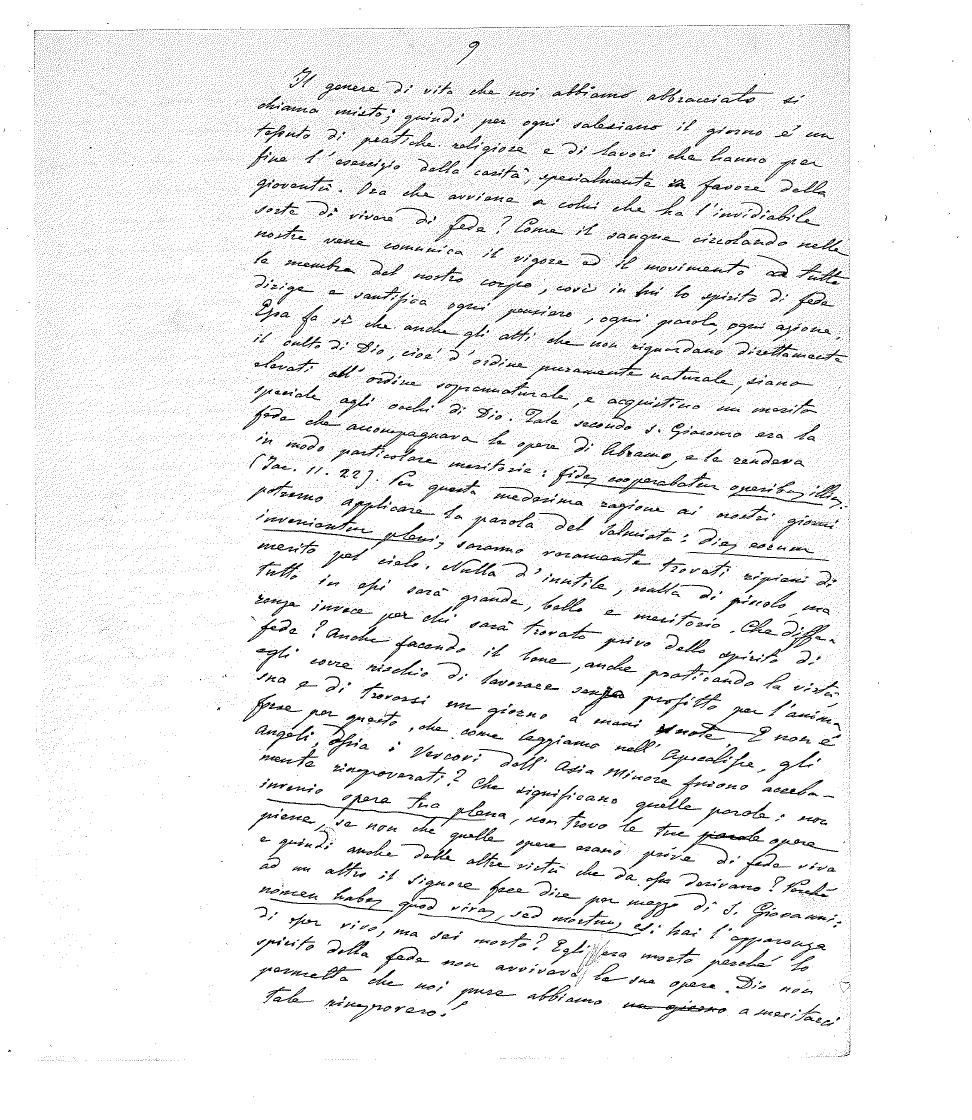 9
Il genere di vita che noi abbiamo abbracciato si
chiama misto; quindi per ogni salesiano il giorno è un
tessuto di pratiche religiose e di lavori che hanno per
fine l'esercizio della carità, specialmente in favore della
gioventù. Ora che avviene a colui che ha l'invidiabile
sorte di vivere di fede? Come il sangue circolando nelle
nostre vene comunica il vigore ed il movimento a tutte
le membra del nostro corpo, così in lui lo spirito di fede
dirige e santifica ogni pensiero, ogni parola, ogni azione.
Essa fa sì che anche gli atti che non riguardano direttamente
il culto di Dio, cioè d'ordine puramente naturale, siano
elevati all'ordine soprannaturale, e acquistino un merito
speciale agli occhi di Dio. Tale secondo S. Giacomo era la
fede che accompagnava le opere di Abramo, e le rendeva
in modo particolare meritorie: fides cooperabatur operibus illius.
(Jac. 11. 22). Per questa medesima ragione ai nostri giorni
potremo applicare la parola del Salmista: dies eorum
invenientur pleni, saranno veramente trovati ripieni di
merito pel cielo. Nulla d'inutile, nulla di piccolo, ma
tutto in essi sarà grande, bello e meritorio. Che diffe-
renza invece per chi sarà trovato privo dello spirito di
fede? Anche facendo il bene, anche praticando la virtù
egli corre rischio di lavorare senza profitto per l'anima
sua e di trovarsi un giorno a mani vuote. E non è
forse per questo, che come leggiamo nell'Apocalisse, gli
Angeli, ossia i Vescovi dell'Asia Minore furono acerba-
mente rimproverati? Che significano quelle parole: non
invenio opera tua plena, non trovo le tue parole opere
piene, se non che quelle opere erano prive di fede viva
e quindi anche delle altre virtù che da essa derivano? Perchè
ad un altro il Signore fece dire per mezzo di S. Giovanni:
nomen habes quod vivas, sed mortuus es: hai l'apparenza
di esser vivo, ma sei morto? Egli era morto perchè lo
spirito della fede non avvivava le sue opere. Dio non
permetta che noi pure abbiamo un giorno a meritarci
tale rimprovero!